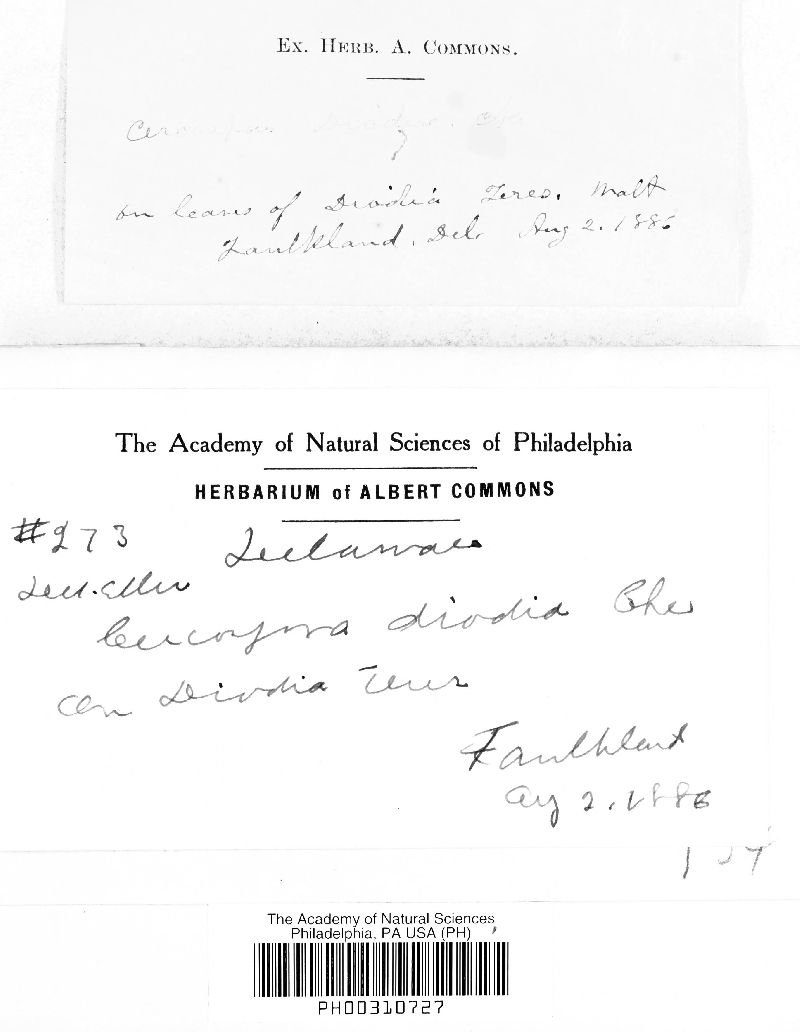 Ex. Herb. A. Commons.
on leaves of Diodia Teres. Walt
Faulkland. Del. Aug 2. 1886
The Academy of Natural Sciences of Philadelphia
HERBARIUM of ALBERT COMMONS
#273 Delaware
Cercospora diodia Cke
On Diodia Teres
Faulkland
Aug 2, 1886
The Academy of Natural Sciences
Philadelphia, PA USA (PH)
PH00310727